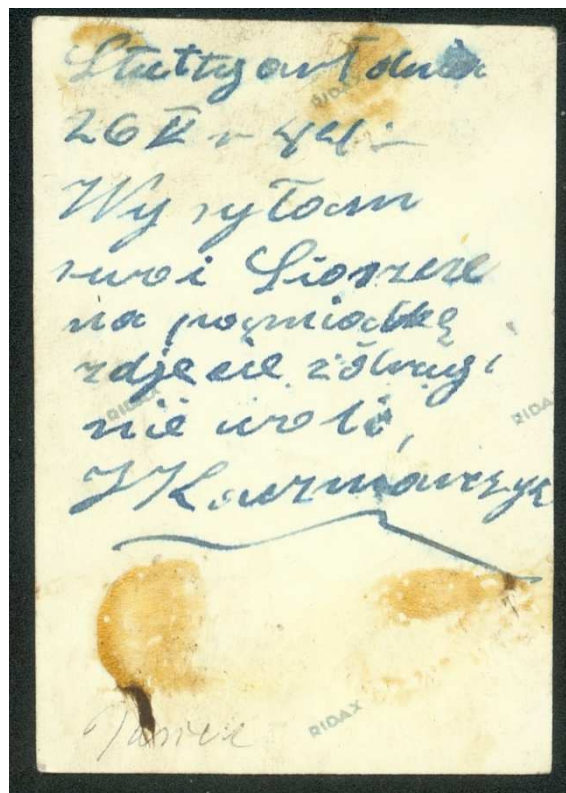 Stuttgart dnia
26 V
Wysyłam
swoi Siostrze
na pamiadkę
zdjęcie z drugi
niewoli,
J Kaczmarczyk
RIDAX
RIDAX
RIDAX
RIDAX